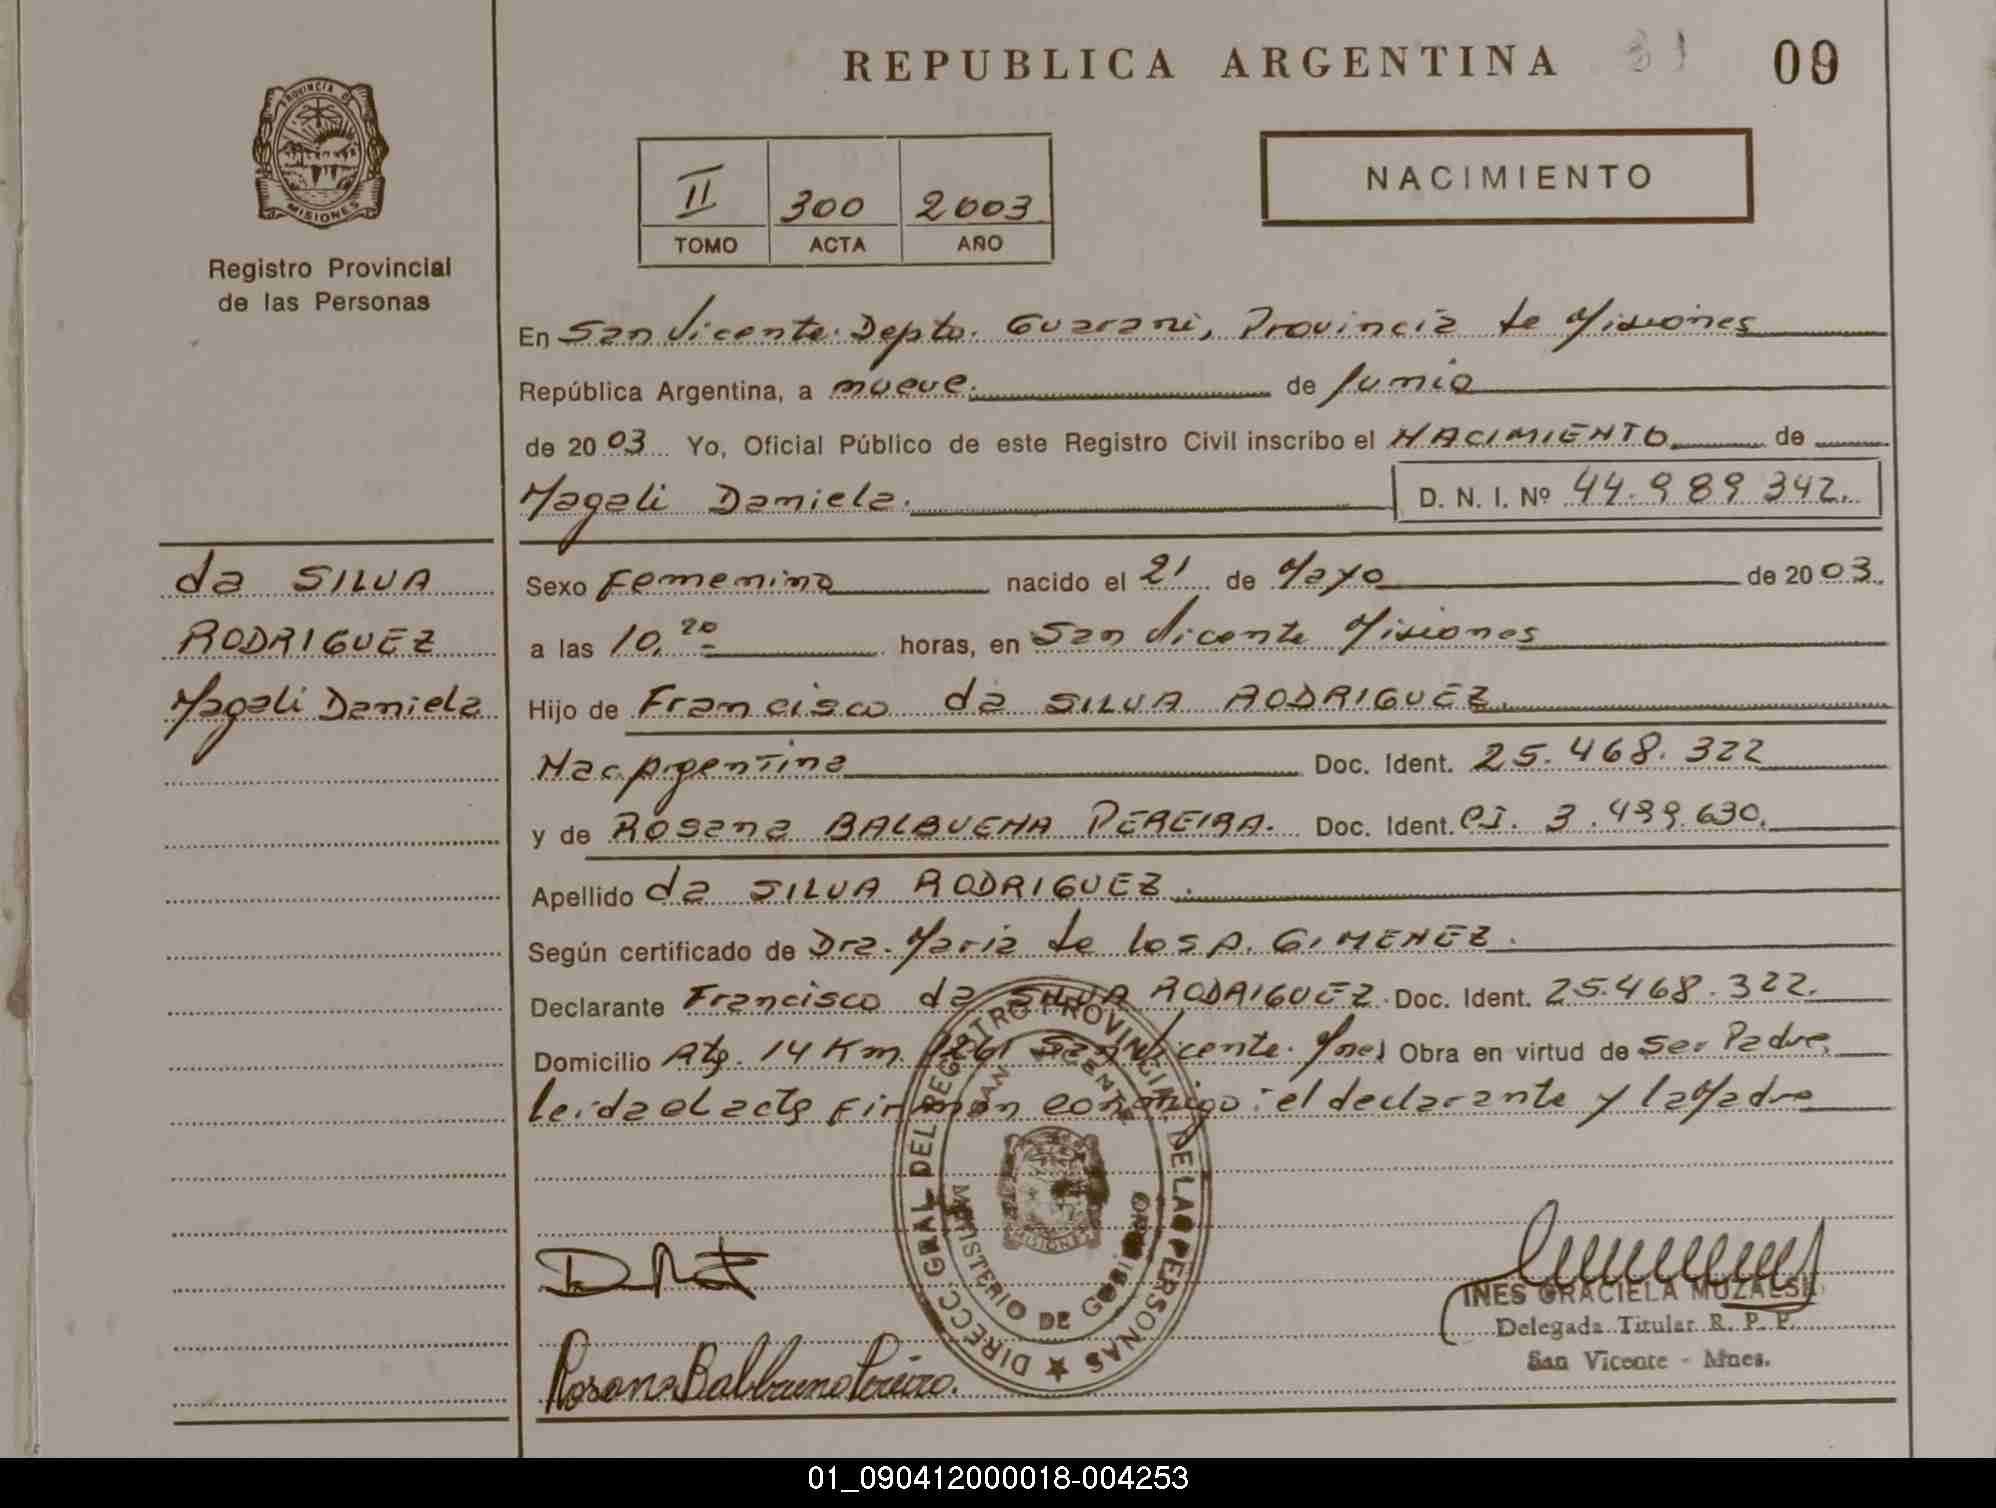 REPUBLICA ARGENTINA 31 09
PROVINCIA DE
MISIONES
Registro Provincial
de las Personas
II 300 2003
TOMO ACTA AÑO
NACIMIENTO
En San Vicente. Depto. Guarani, Provincia de Misiones
República Argentina, a nueve. de Junio
de 2003 Yo, Oficial Público de este Registro Civil inscribo el NACIMIENTO de
Magali Daniela. D. N. I. Nº 44.989 342.
da SILVA
RODRIGUEZ
Magali Daniela
Sexo Femenino nacido el 21 de Mayo de 2003.
a las 10,20 horas, en San Vicente Misiones
Hijo de Francisco da SILVA RODRIGUEZ
Nac. Argentina Doc. Ident. 25.468.322
y de Rosana BALBUENA PEREIRA. Doc. Ident. CI. 3.499.630.
Apellido da SILVA RODRIGUEZ.
Según certificado de Dra. Maria de los A. GIMENEZ.
Declarante Francisco da SILVA RODRIGUEZ. Doc. Ident. 25.468.322.
Domicilio Rta. 14 Km. 1261 San Vicente. Mnes Obra en virtud de Ser Padre.
leida el acta firman conmigo: el declarante y la Madre
DIRECC. GRAL. DEL REGISTRO PROVINCIAL DE LAS PERSONAS
SAN VICENTE
MINISTERIO DE GOBIERNO
MISIONES
INES GRACIELA MUZALSKI
Delegada Titular R. P. P.
San Vicente - Mnes.
Rosana Balbuena Pereira.
01_090412000018-004253